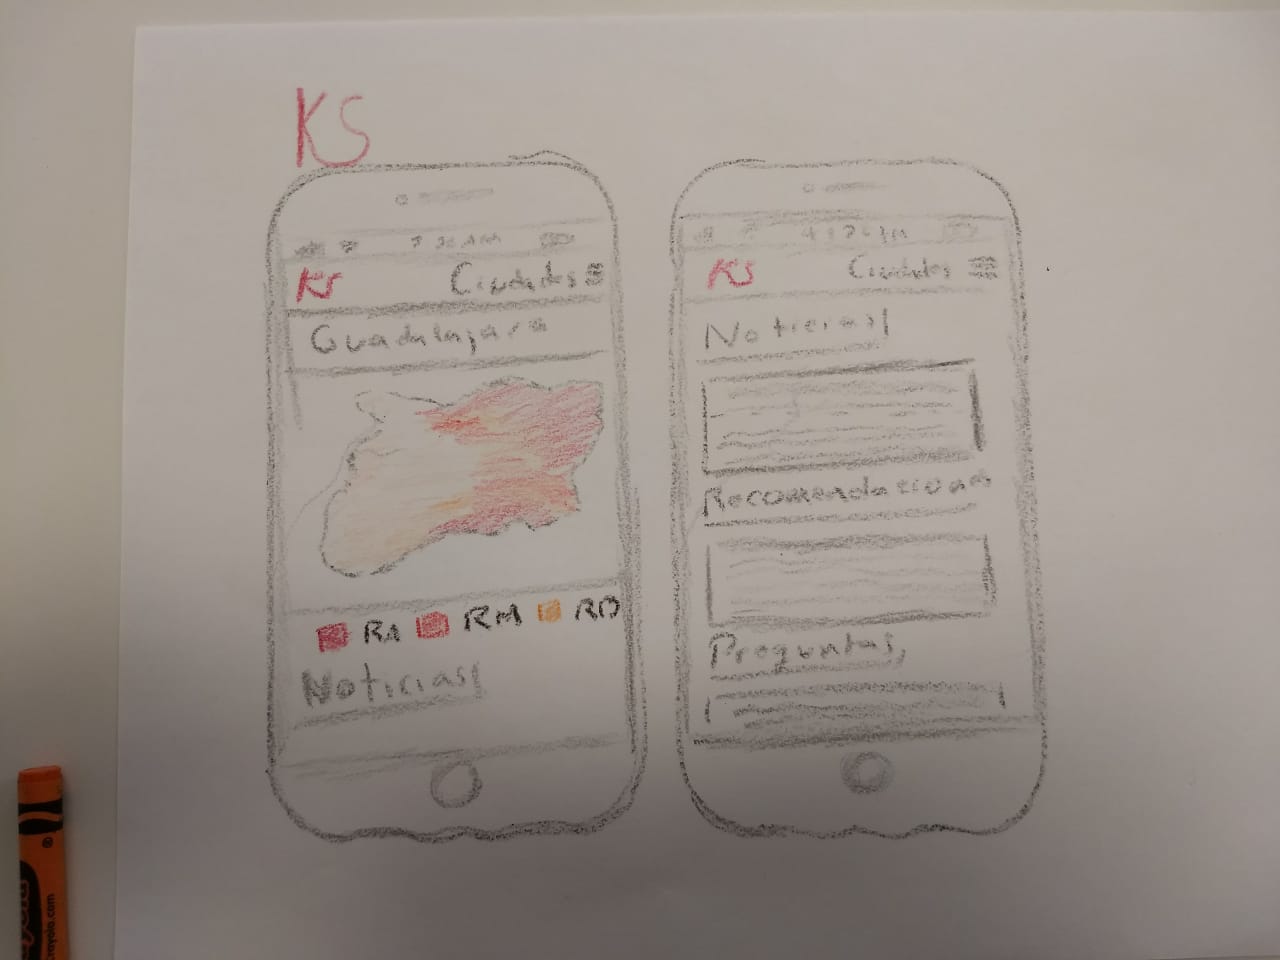 KS
KS Ciudades
Guadalajara
RA RM RB
Noticias
KS Ciudades
Noticias
Recomendaciones
Preguntas
crayola.com